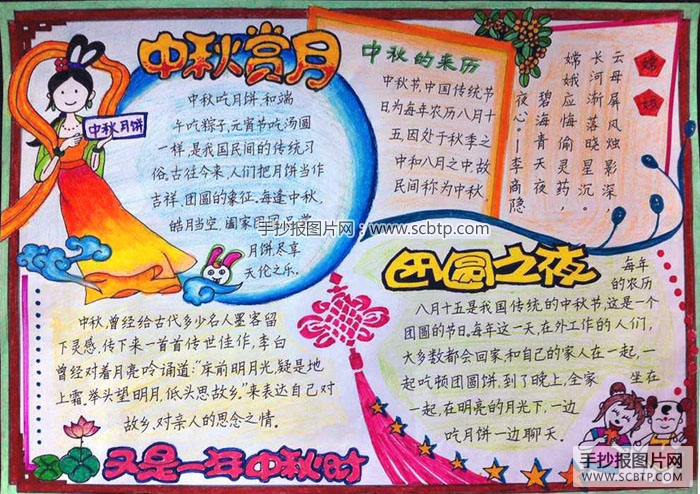 中秋赏月
中秋月饼
中秋吃月饼,和端
午吃粽子,元宵节吃汤圆
一样,是我国民间的传统习
俗,古往今来,人们把月饼当作
吉祥、团圆的象征,每逢中秋,
皓月当空,阖家团圆,品尝
月饼,尽享
天伦之乐。
中秋的来历
中秋节,中国传统节
日为每年农历八月十
五,因处于秋季之
中和八月之中,故
民间称为中秋
嫦娥
云母屏风烛影深,
长河渐落晓星沉。
嫦娥应悔偷灵药,
碧海青天夜
夜心。—李商隐
手抄报图片网:www.scbtp.com
中秋,曾经给古代多少名人墨客留
下灵感,传下来一首首传世佳作,李白
曾经对着月亮吟诵道:"床前明月光,疑是地
上霜。举头望明月,低头思故乡。"来表达自己对
故乡、对亲人的思念之情。
团圆之夜
每年
的农历
八月十五是我国传统的中秋节,这是一个
团圆的节日,每年这一天,在外工作的人们,
大多数都会回家和自己的家人在一起,一
起吃顿团圆饼,到了晚上,全家坐在
一起,在明亮的月光下,一边
吃月饼一边聊天。
又是一年中秋时
手抄报图片网
WWW.SCBTP.COM